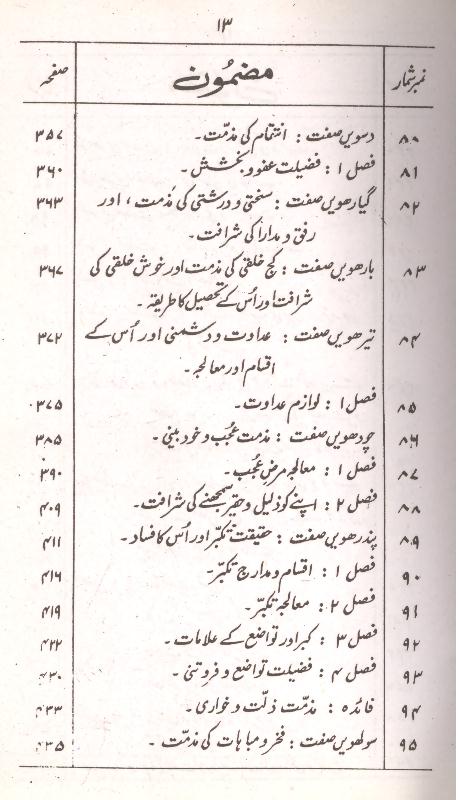 ۱۳
نمبر شمار مضمون صفحہ
۸۰ دسویں صفت : انتقام کی مذمّت۔ ۳۵۷
۸۱ فصل ۱ : فضیلت عفو و بخشش۔ ۳۶۰
۸۲ گیارھویں صفت : سختی و درشتی کی مذمت ، اور ۳۶۳
رفق و مدارا کی شرافت۔
۸۳ بارھویں صفت : کج خلقی کی مذمت اور خوش خلقی کی ۳۶۷
شرافت اور اُس کے تحصیل کا طریقہ۔
۸۴ تیرھویں صفت : عداوت و دشمنی اور اُس کے ۳۷۲
اقسام اور معالجہ۔
۸۵ فصل ۱ : لوازم عداوت۔ ۳۷۵
۸۶ چودھویں صفت : مذمت عُجب و خود بینی۔ ۳۸۵
۸۷ فصل ۱ : معالجہ مرضِ عُجب۔ ۳۹۰
۸۸ فصل ۲ : اپنے کو ذلیل و حقیر سمجھنے کی شرافت۔ ۴۰۹
۸۹ پندرھویں صفت : حقیقت تکبّر اور اُس کا فساد۔ ۴۱۱
۹۰ فصل ۱ : اقسام و مدارج تکبّر۔ ۴۱۶
۹۱ فصل ۲ : معالجۂ تکبّر۔ ۴۱۹
۹۲ فصل ۳ : کبر اور تواضع کے علامات۔ ۴۲۲
۹۳ فصل ۴ : فضیلت تواضع و فروتنی۔ ۴۳۰
۹۴ فائدہ : مذمّت ذلّت و خواری۔ ۴۳۳
۹۵ سولھویں صفت : فخر و مباہات کی مذمّت۔ ۴۳۵